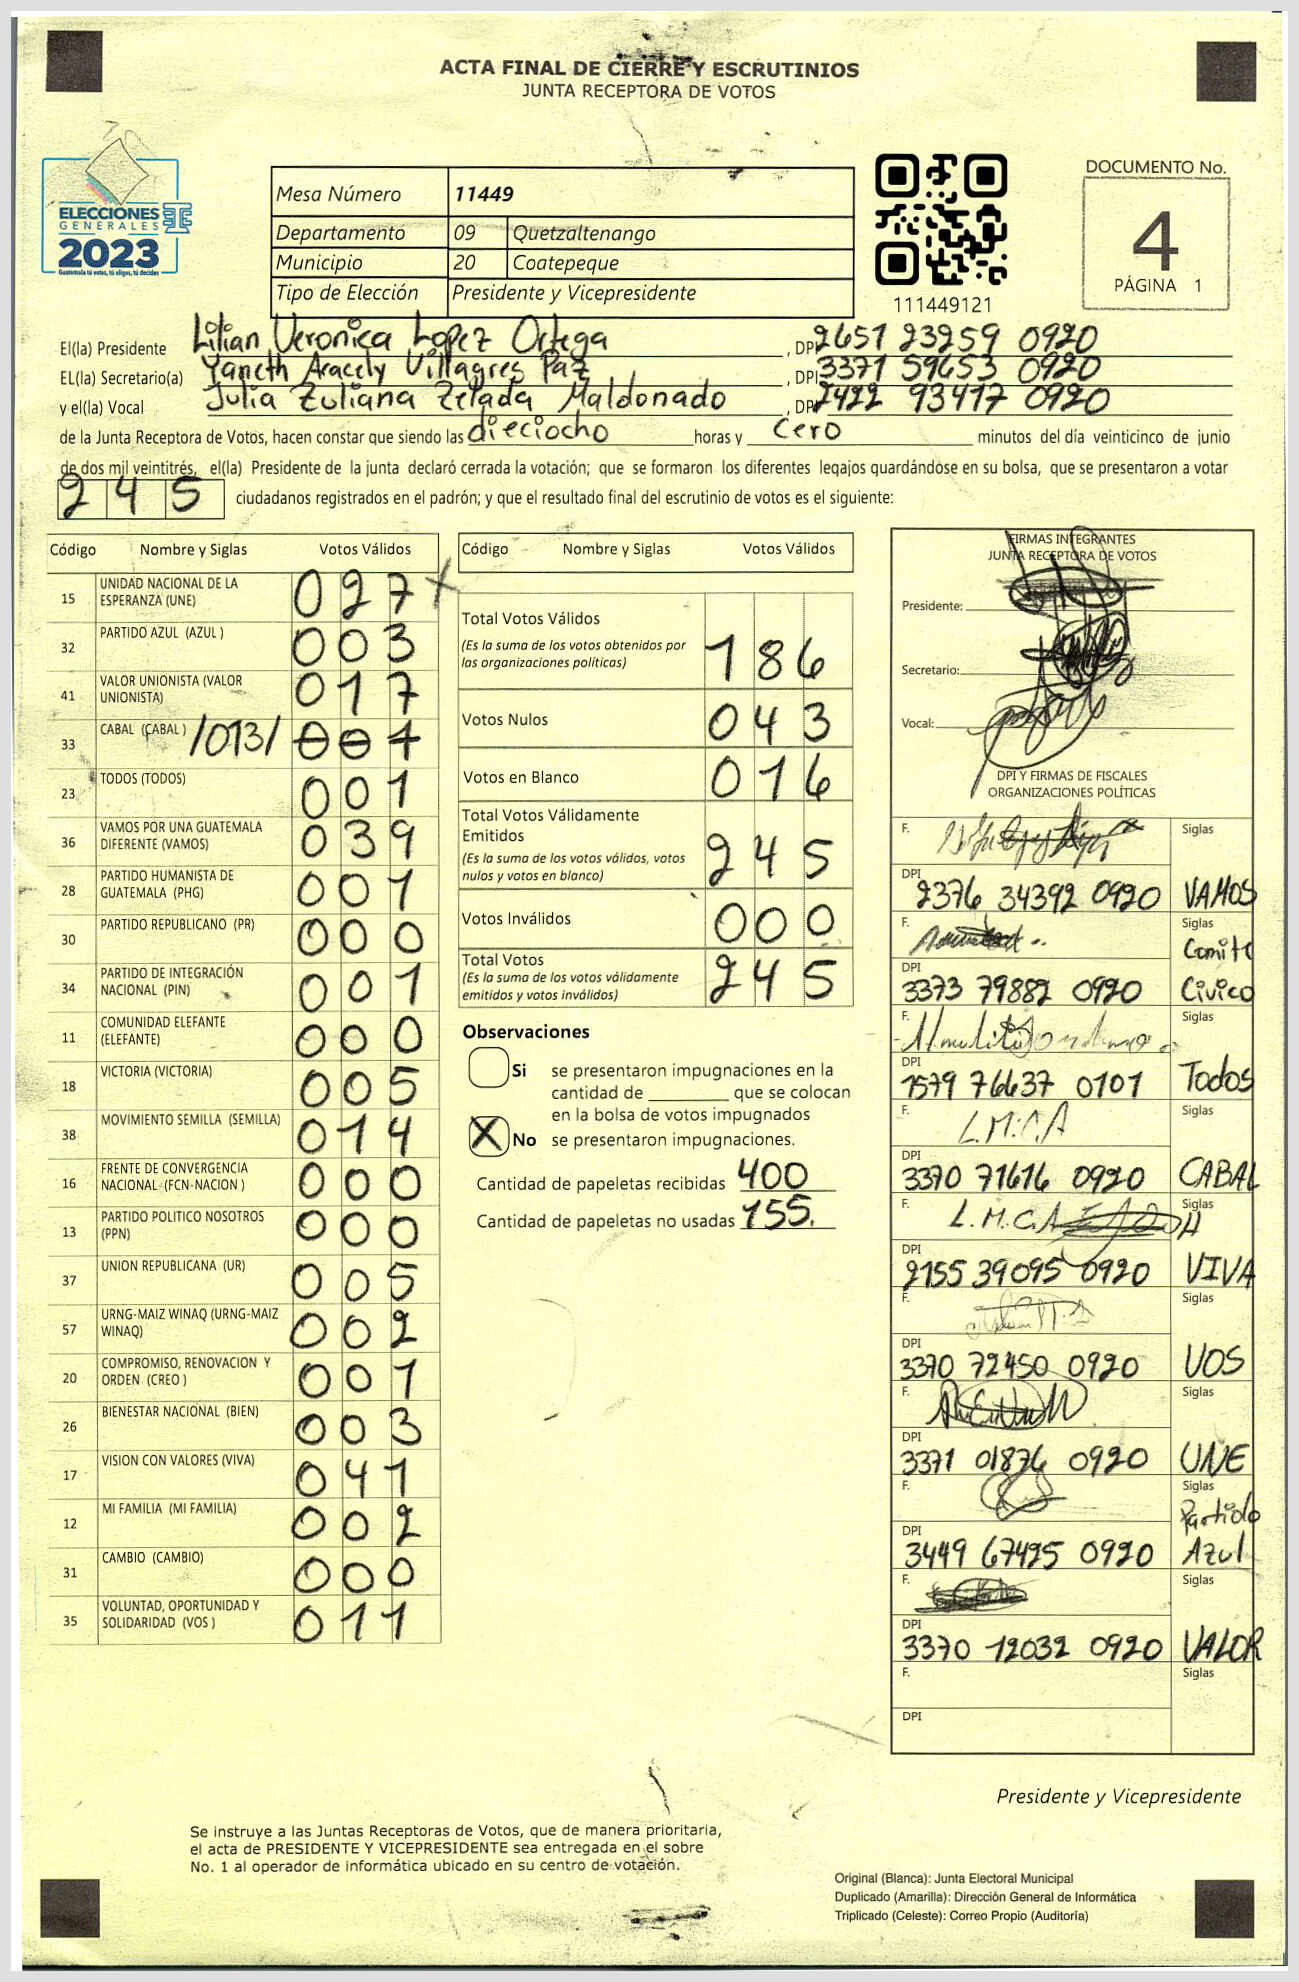 ACTA FINAL DE CIERRE Y ESCRUTINIOS
JUNTA RECEPTORA DE VOTOS
ELECCIONES
GENERALES
2023
Guatemala tú votas, tú eliges, tú decides
Mesa Número 11449
Departamento 09 Quetzaltenango
Municipio 20 Coatepeque
Tipo de Elección Presidente y Vicepresidente
111449121
DOCUMENTO No.
4
PÁGINA 1
El(la) Presidente Lilian Veronica Lopez Ortega, DPI 2651 23259 0920
EL(la) Secretario(a) Yaneth Aracely Villagres Paz, DPI 3371 59653 0920
y el(la) Vocal Julia Zuliana Zelada Maldonado, DPI 2422 93417 0920
de la Junta Receptora de Votos, hacen constar que siendo las dieciocho horas y cero minutos del día veinticinco de junio
de dos mil veintitrés, el(la) Presidente de la junta declaró cerrada la votación; que se formaron los diferentes legajos guardándose en su bolsa, que se presentaron a votar
245 ciudadanos registrados en el padrón; y que el resultado final del escrutinio de votos es el siguiente:
Código Nombre y Siglas Votos Válidos
15 UNIDAD NACIONAL DE LA ESPERANZA (UNE) 027
32 PARTIDO AZUL (AZUL ) 003
41 VALOR UNIONISTA (VALOR UNIONISTA) 017
33 CABAL (CABAL ) /013/ 001
23 TODOS (TODOS) 001
36 VAMOS POR UNA GUATEMALA DIFERENTE (VAMOS) 039
28 PARTIDO HUMANISTA DE GUATEMALA (PHG) 001
30 PARTIDO REPUBLICANO (PR) 000
34 PARTIDO DE INTEGRACIÓN NACIONAL (PIN) 001
11 COMUNIDAD ELEFANTE (ELEFANTE) 000
18 VICTORIA (VICTORIA) 005
38 MOVIMIENTO SEMILLA (SEMILLA) 014
16 FRENTE DE CONVERGENCIA NACIONAL (FCN-NACION ) 000
13 PARTIDO POLITICO NOSOTROS (PPN) 000
37 UNION REPUBLICANA (UR) 005
57 URNG-MAIZ WINAQ (URNG-MAIZ WINAQ) 002
20 COMPROMISO, RENOVACION Y ORDEN (CREO ) 001
26 BIENESTAR NACIONAL (BIEN) 003
17 VISION CON VALORES (VIVA) 041
12 MI FAMILIA (MI FAMILIA) 002
31 CAMBIO (CAMBIO) 000
35 VOLUNTAD, OPORTUNIDAD Y SOLIDARIDAD (VOS ) 011
Código Nombre y Siglas Votos Válidos
Total Votos Válidos 186
(Es la suma de los votos obtenidos por
las organizaciones políticas)
Votos Nulos 043
Votos en Blanco 016
Total Votos Válidamente
Emitidos 245
(Es la suma de los votos válidos, votos
nulos y votos en blanco)
Votos Inválidos 000
Total Votos 245
(Es la suma de los votos válidamente
emitidos y votos inválidos)
Observaciones
Si se presentaron impugnaciones en la
cantidad de ________ que se colocan
en la bolsa de votos impugnados
X No se presentaron impugnaciones.
Cantidad de papeletas recibidas 400
Cantidad de papeletas no usadas 155.
FIRMAS INTEGRANTES
JUNTA RECEPTORA DE VOTOS
Presidente:
Secretario:
Vocal:
DPI Y FIRMAS DE FISCALES
ORGANIZACIONES POLÍTICAS
F. Siglas
DPI 2376 34392 0920 VAMOS
F. Siglas Comite
DPI 3373 79882 0920 Civico
F. Siglas
DPI 1579 76637 0101 Todos
F. L.M.C.A Siglas
DPI 3370 71616 0920 CABAL
F. L.M.C.A Siglas
DPI 2155 39095 0920 VIVA
F. Siglas
DPI 3370 72450 0920 VOS
F. Siglas
DPI 3371 01876 0920 UNE
F. Siglas Partido
DPI 3449 67425 0920 Azul
F. Siglas
DPI 3370 12032 0920 VALOR
F. Siglas
DPI
Presidente y Vicepresidente
Se instruye a las Juntas Receptoras de Votos, que de manera prioritaria,
el acta de PRESIDENTE Y VICEPRESIDENTE sea entregada en el sobre
No. 1 al operador de informática ubicado en su centro de votación.
Original (Blanca): Junta Electoral Municipal
Duplicado (Amarilla): Dirección General de Informática
Triplicado (Celeste): Correo Propio (Auditoría)